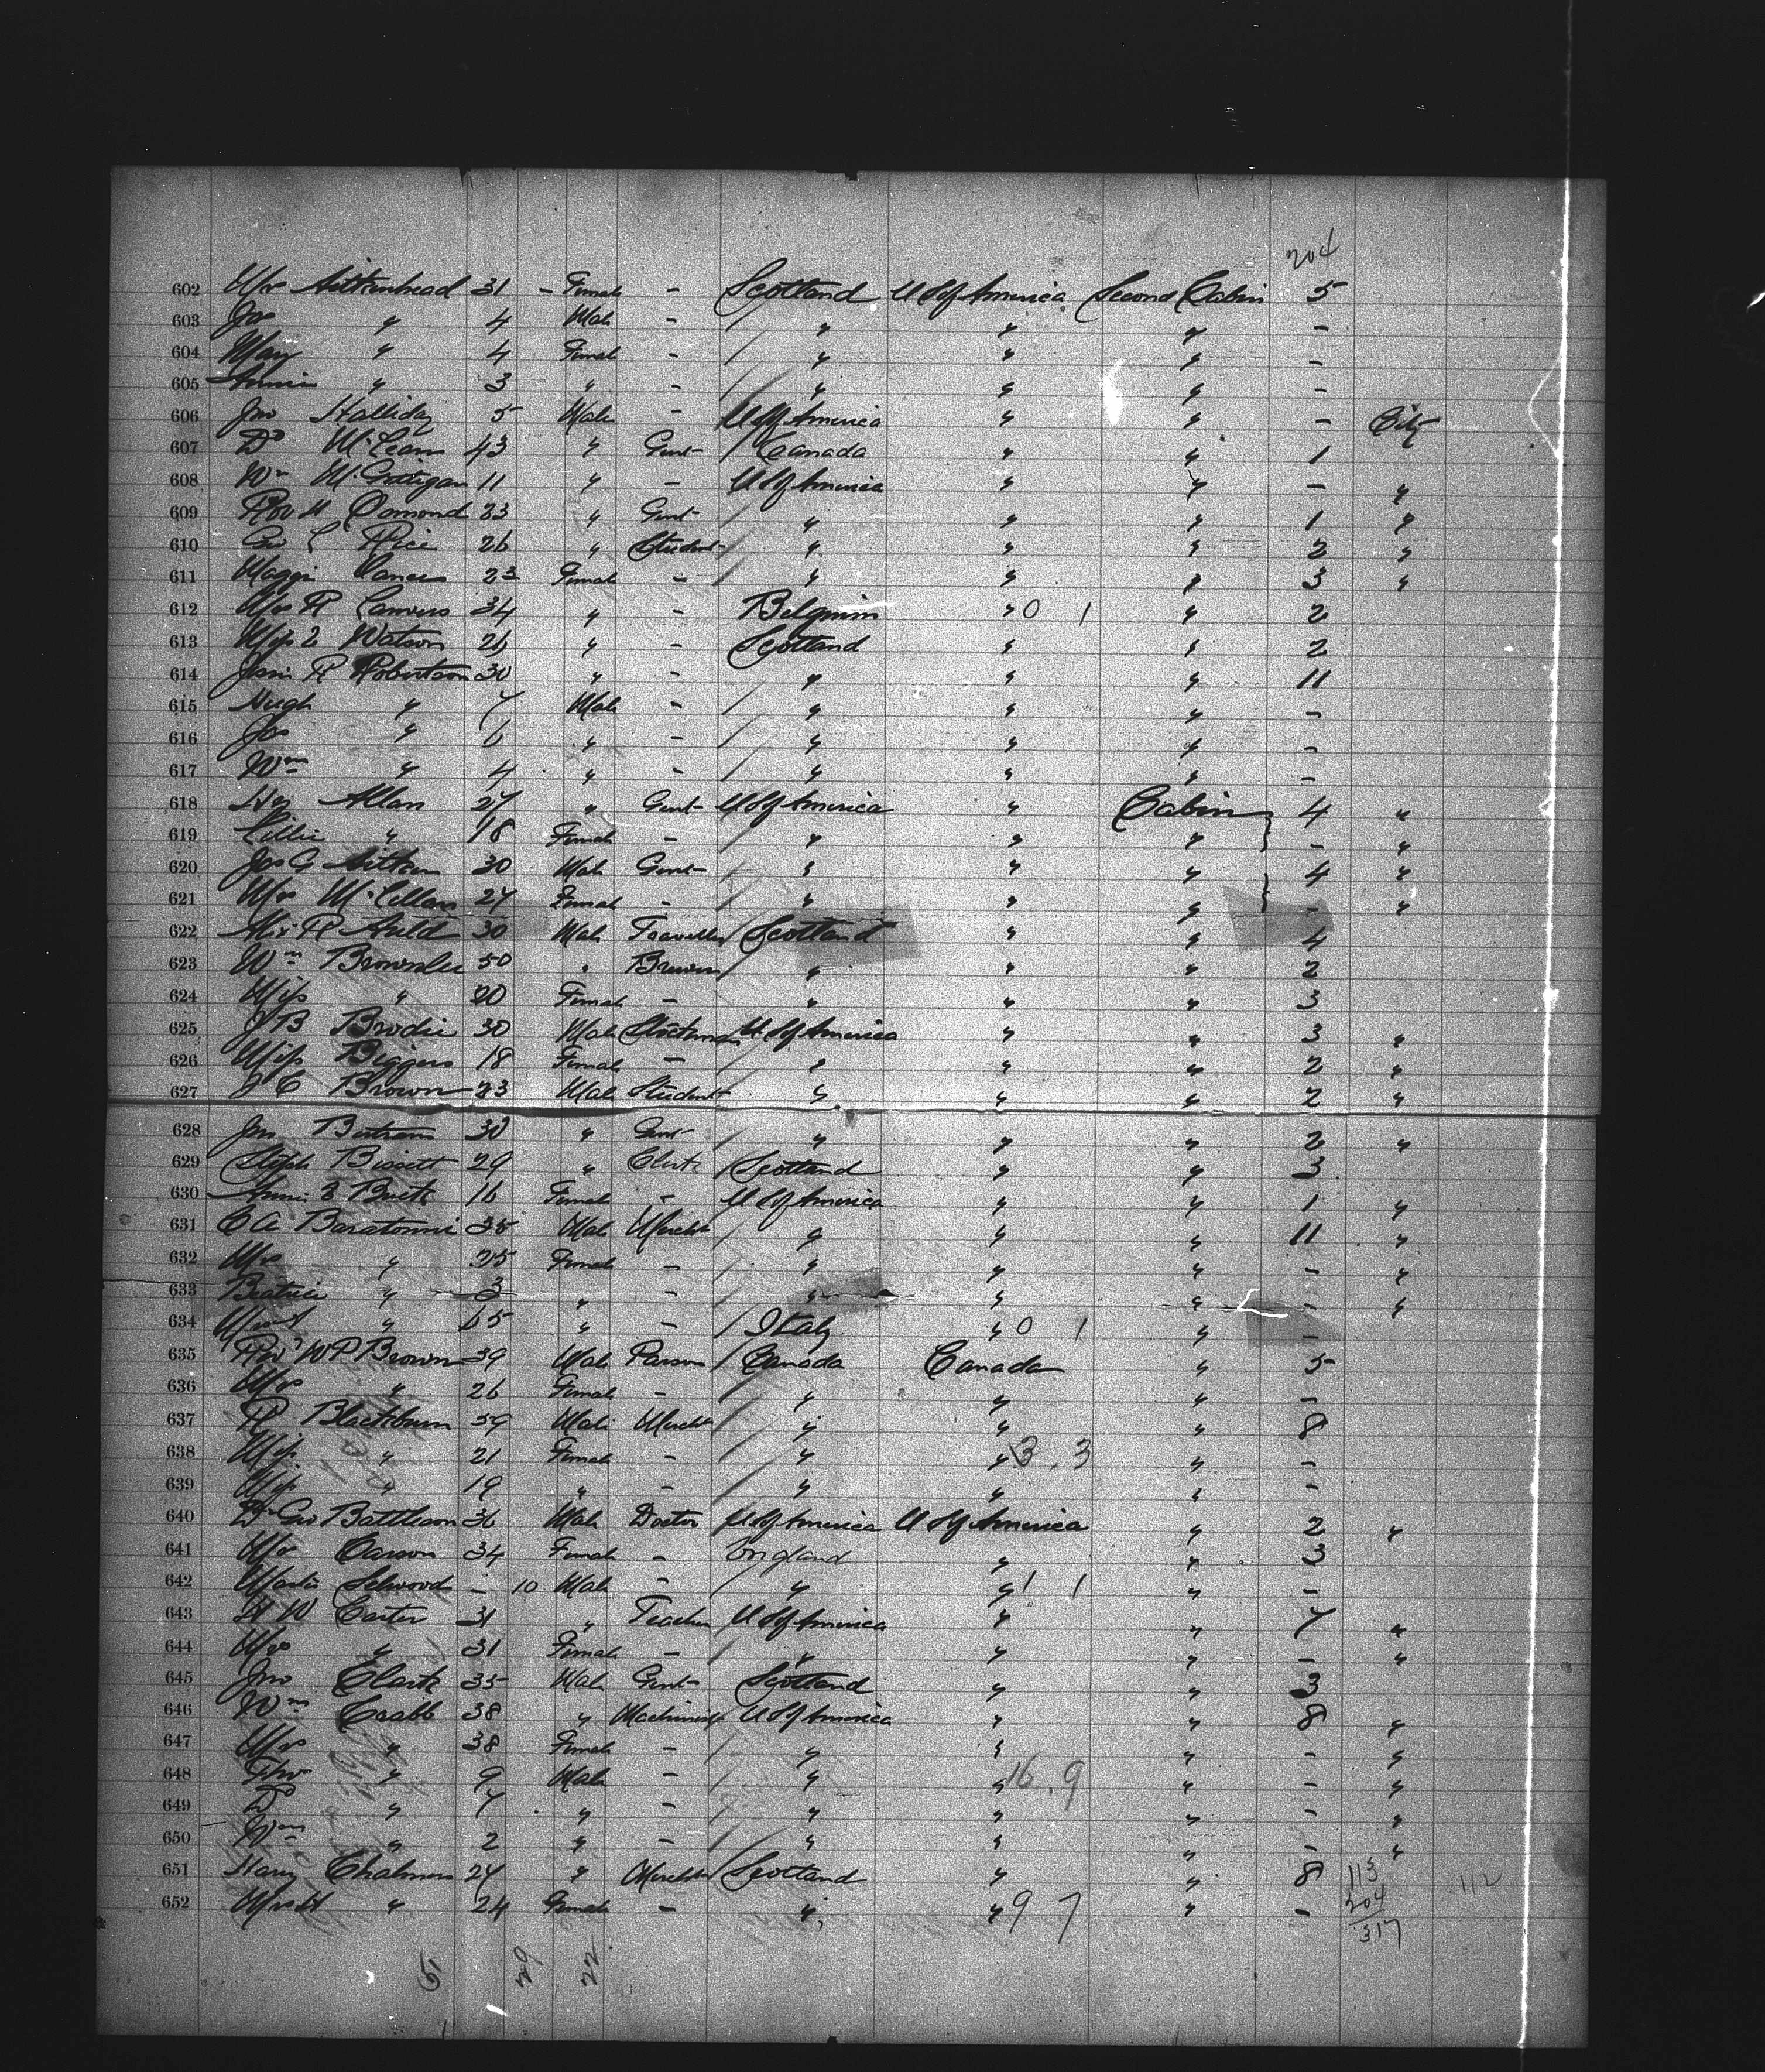 204
602 Mrs Aitkenhead 31 - Female - Scotland U S of America Second Cabin 5
603 Jas " 4 Male - " " " -
604 Mary " 4 Female - " " " -
605 Annie " 3 " - " " " -
606 Jno Halliday 5 Male - U S of America " " - City
607 Dd McLean 43 " Gent Canada " " 1
608 Wm 11 " - U S of America " " - "
609 Osmond 33 " Gent " " " 1 "
610 Geo L Rice 26 " Student " " " 2 "
611 Maggie 23 Female - " " " 3 "
612 Mrs R 34 " - Belgium " 0 1 " 2
613 Miss E Watson 26 " - Scotland " " 2
614 Jessie R Robertson 30 " - " " " 11
615 Hugh " 7 Male - " " " -
616 Jas " 6 " - " " " -
617 Wm " 4 " - " " " -
618 Hy Allan 27 " Gent U S of America " Cabin 4 "
619 Lillie " 18 Female - " " " - "
620 Jas G Aitken 30 Male Gent " " " 4 "
621 Mrs McLellan 27 Female - " " " - "
622 R Auld 30 Male Traveller Scotland " " 4
623 Wm Brownlee 50 " Brewer " " " 2
624 Miss " 20 Female - " " " 3
625 J B Brodie 30 Male U S of America " " 3 "
626 Miss Biggers 18 Female - " " " 2 "
627 J C Brown 23 Male Student " " " 2 "
628 Jno Bertram 30 " Gent " " " 2 "
629 Steph Bissett 29 " Clerk Scotland " " 3
630 Annie E Buck 16 Female - U S of America " " 1 "
631 C A 35 Male Mercht " " " 11 "
632 Mrs " 25 Female - " " " - "
633 Beatrice " 3 " - " " " - "
634 " 65 " - Italy " 0 1 " -
635 Revd W P Brown 39 Male Parson Canada Canada " 5
636 Mrs " 26 Female - " " " -
637 R Blackburn 59 Male Mercht " " " 8
638 Miss " 21 Female - " " 3 . 3 " -
639 Miss " 19 " - " " " -
640 Dr Geo 36 Male Doctor U S of America U S of America " 2 "
641 Mrs Carson 34 Female - England " " 3
642 Selwood - 10 Male - " " 1 1 " -
643 H W Carter 31 " Teacher U S of America " " 7 "
644 Mrs " 31 Female - " " " - "
645 Jno Clark 35 Male Gent Scotland " " 3
646 Wm Crabb 38 " Machinist U S of America " " 8 "
647 Mrs " 38 Female - " " " - "
648 Thos " 9 Male - " " 16 . 9 " - "
649 Dd " 7 " - " " " - "
650 Wm " 2 " - " " " - "
651 Harry Chalmers 27 " Mercht Scotland " " 8 113 112
652 " 24 Female - " " 9 7 " - 204
317
51 29 22